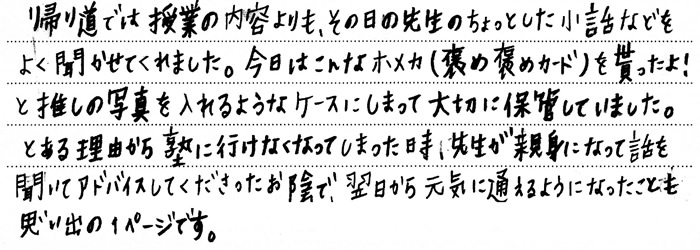 帰り道では授業の内容よりも、その日の先生のちょっとした小話などを
よく聞かせてくれました。今日はこんなホメカ(褒め褒めカード)を貰ったよ!
と推しの写真を入れるようなケースにしまって大切に保管していました。
とある理由から塾に行けなくなってしまった日時、先生が親身になって話を
聞いてアドバイスしてくださったお陰で、翌日から元気に通えるようになったことも
思い出の1ページです。